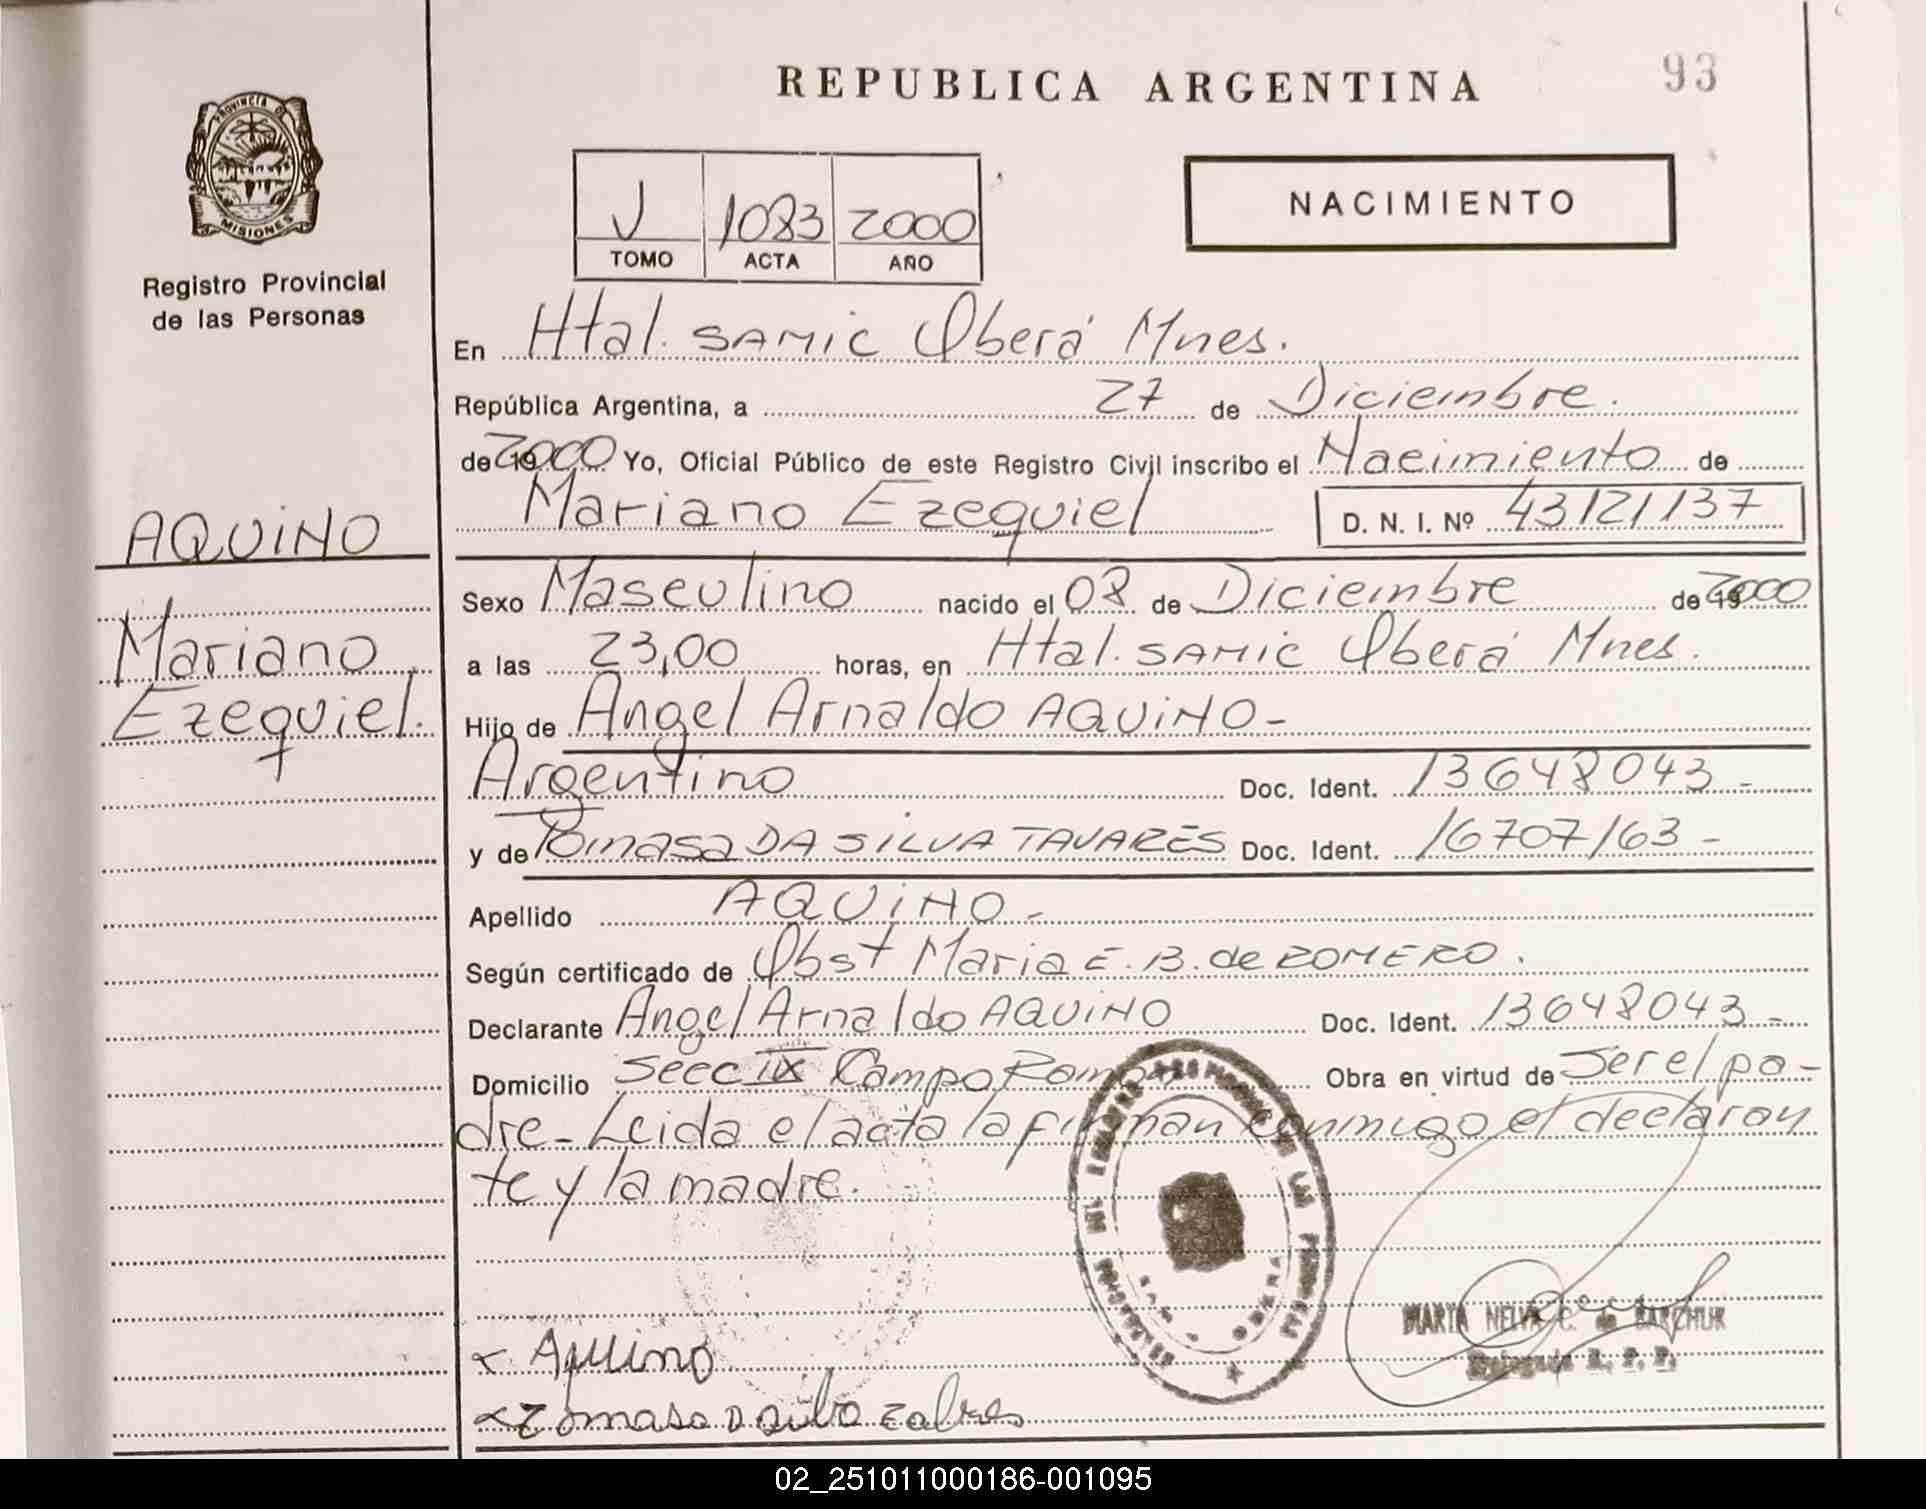 REPUBLICA ARGENTINA
93
PROVINCIA DE
MISIONES
Registro Provincial
de las Personas
J 1083 2000
TOMO ACTA AÑO
NACIMIENTO
En Htal. SAMIC Oberá Mnes.
República Argentina, a 27 de Diciembre.
de 2000 Yo, Oficial Público de este Registro Civil inscribo el Nacimiento de
Mariano Ezequiel D. N. I. Nº 43121137
AQUINO
Mariano
Ezequiel.
Sexo Masculino nacido el 08 de Diciembre de 2000
a las 23,00 horas, en Htal. SAMIC Oberá Mnes.
Hijo de Angel Arnaldo AQUINO-
Argentino Doc. Ident. 13648043-
y de Tomasa DA SILVA TAVARES Doc. Ident. 16707163-
Apellido AQUINO-
Según certificado de Obst Maria E. B. de ROMERO.
Declarante Angel Arnaldo AQUINO Doc. Ident. 13648043-
Domicilio Secc IX Campo Ramón Obra en virtud de Ser el pa-
dre- Leida el acta la firman conmigo el declaran
te y la madre.
MARTA NELVA C. de
Delegada R. P. P.
OBERA
x Aquino
x Tomasa
02_251011000186-001095